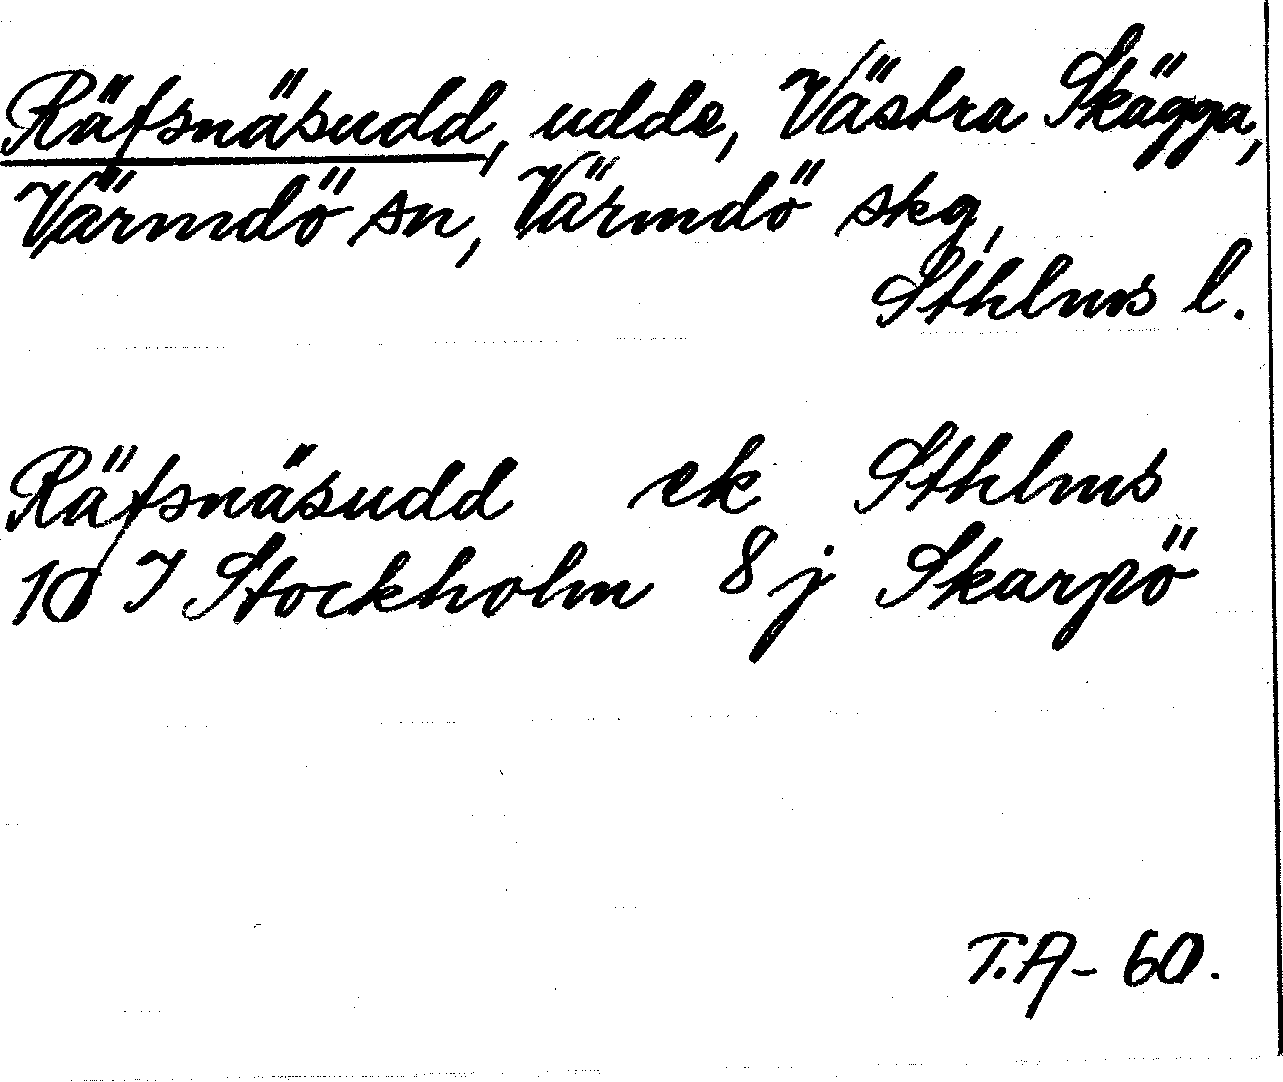 Räfsnäsudd, udde, Västra Skägga,
Värmdö sn, Värmdö skg,
Sthlms l.
Räfsnäsudd ek Sthlms
10 I Stockholm 8 j Skarpö
T.A- 60.